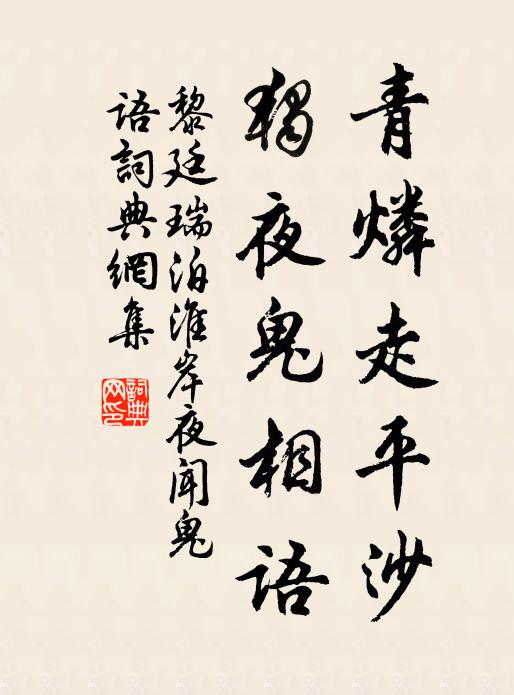 青燐走平沙
獨夜鬼相語
黎廷瑞泊淮岸夜聞鬼
語詞典網集
詞典
网印